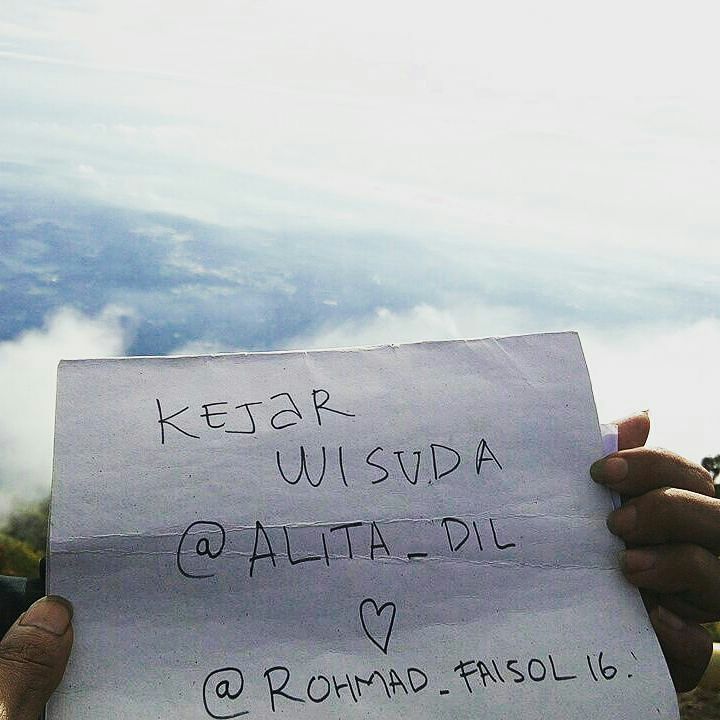 KEJaR
WISUDA
@ALITA_DIL
♡
@ROHMAD_FAISOL16.